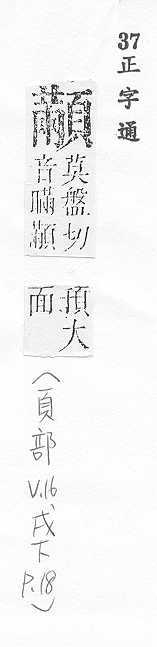 37正字通
顢
莫盤切
音瞞顢
頇大
面
(頁部 V.16 戌下 P.18)